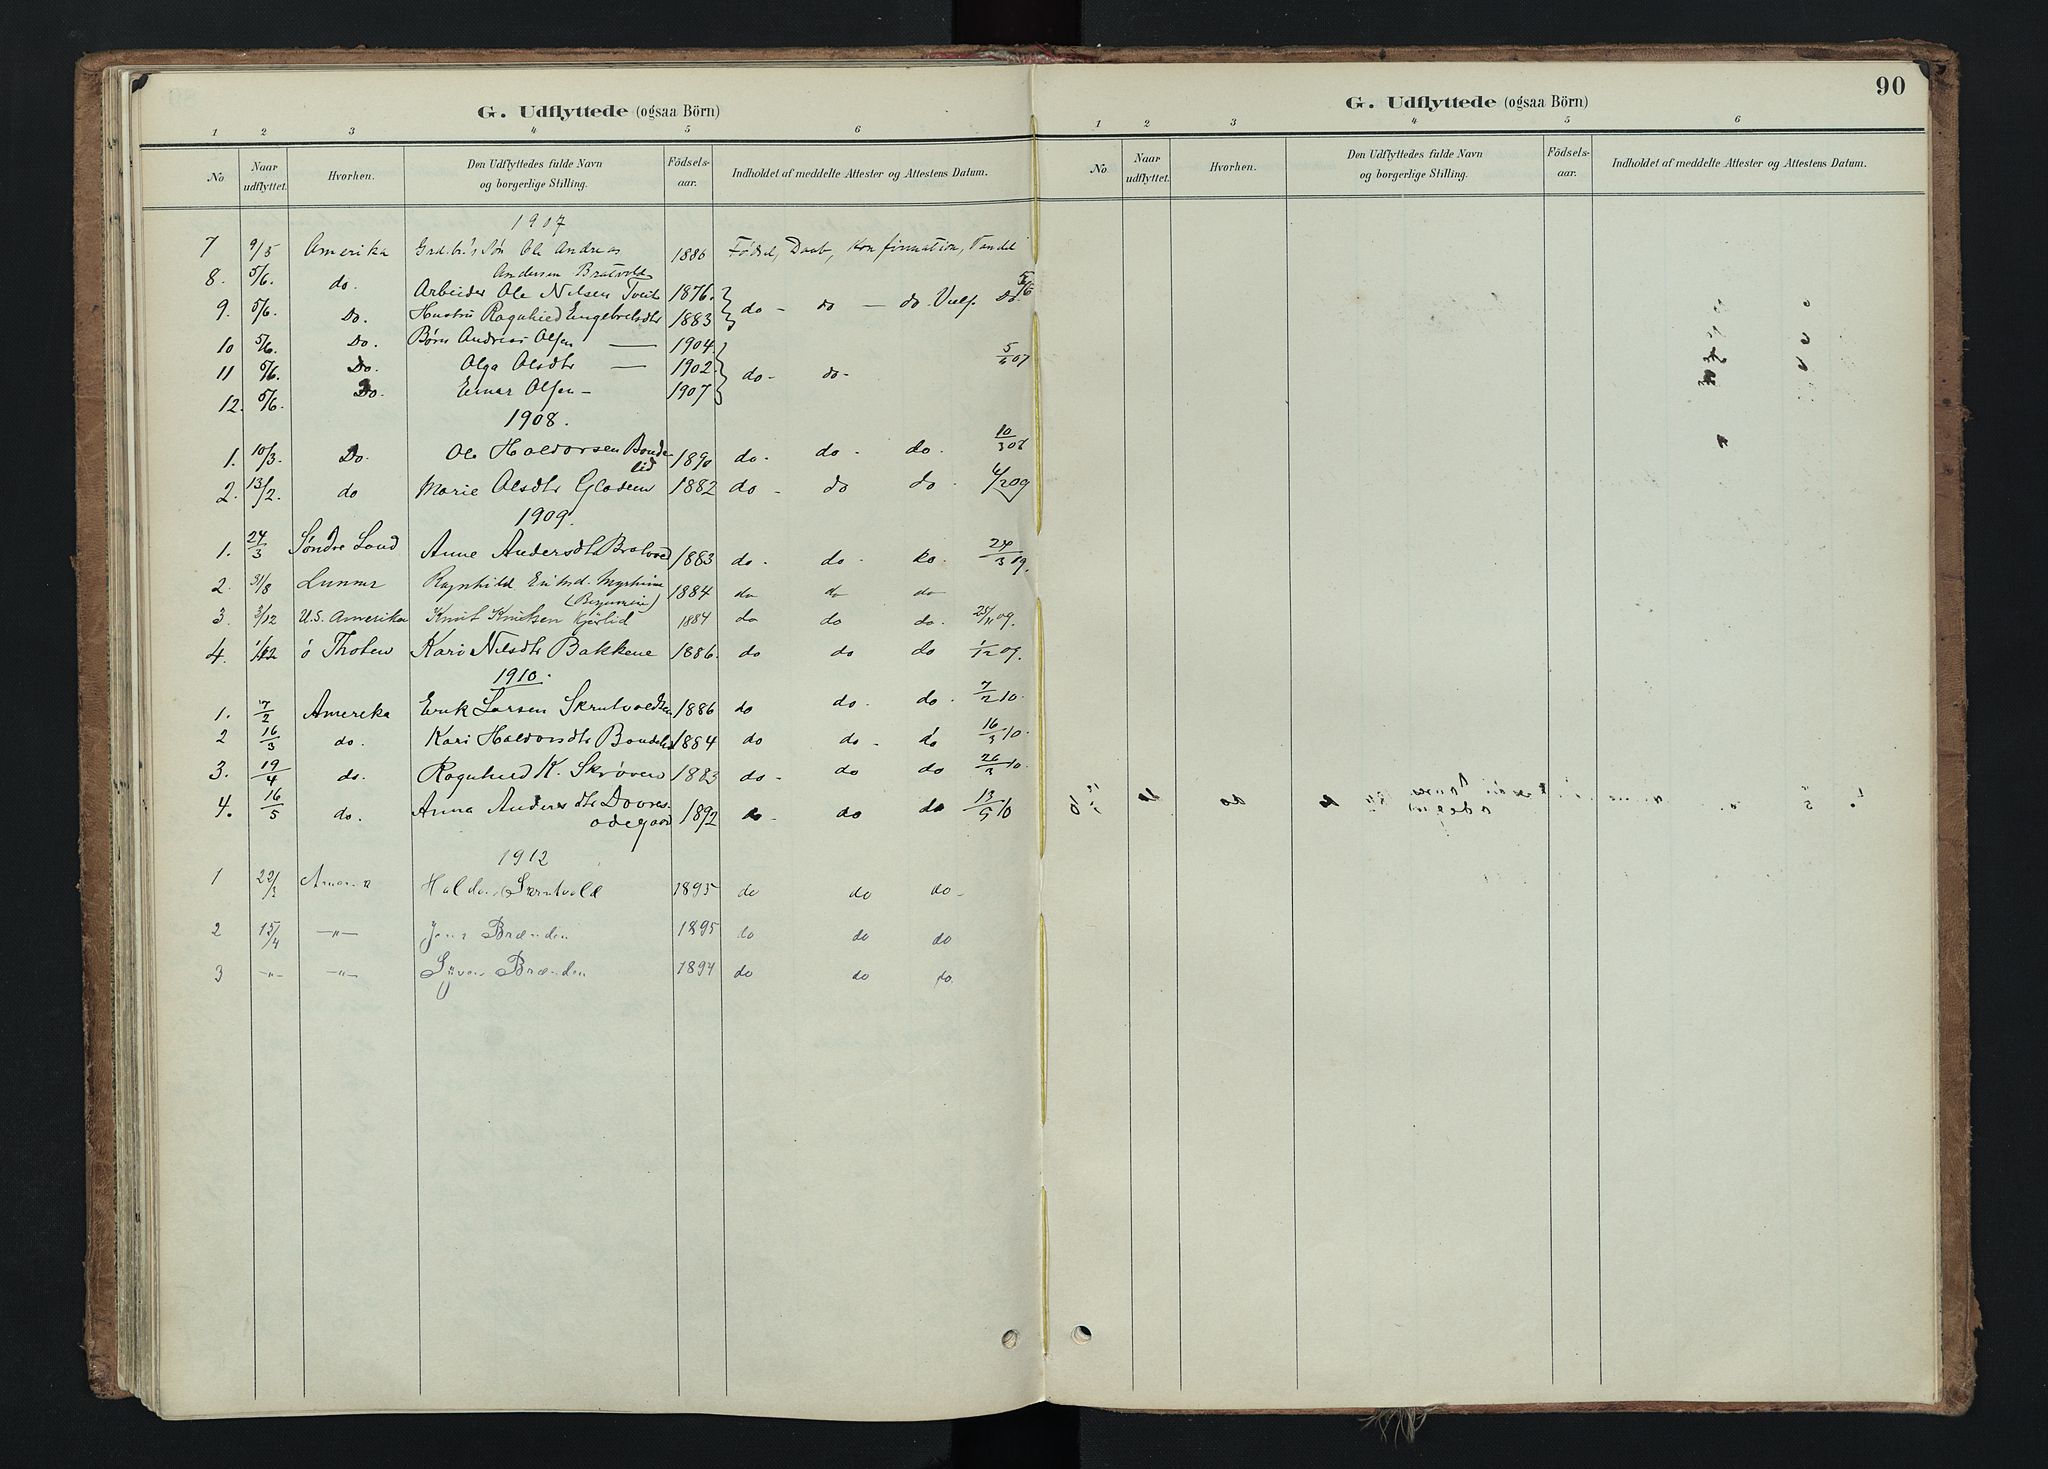 G. Udflyttede (ogsaa Börn)
1 2 3 4 5 6
No Naar udflyttet. Hvorhen. Den Udflyttedes fulde Navn og borgerlige Stilling. Födsels-aar. Indholdet af meddelte Attester og Attestens Datum.
1907
7 9/5 Amerika Grdbr's Søn Ole Andreas 1886 Fødsel, Daab, Konfirmation, Vandel
Andersen Bratvold
8. 5/6. do. Arbeider Ole Nilsen 1876.
9. 5/6. Do. Hustru Ragnhild Engebretsdtr 1883 do - do - do. Do. 5/6
10 5/6. Do. Børn Andreas Olsen — 1904
11 5/6. Do. Olga Olsdtr — 1902 do - do - 5/6 07
12. 5/6. Do. Einar Olsen - 1907
1908.
1. 10/3. Do. Ole Haldorsen Bonde- 1890 do - do - do. 10/3 08
lid
2. 13/2. do Marie Olsdtr 1882 do - do do. 4/2 09
1909.
1. 24/3 Søndre Land Anne Andersdtr Bratvold 1883 do. do. do. 24/3 09.
2. 31/8 Lunner Ragnhild 1884 do do do
3. 3/12 U.S. Amerika Knut Knutsen 1884 do do do. 25/11 09.
4. ø Thoten Kari Nilsdtr Bakkene 1886. do do do 1/12 09.
1910.
1. 7/2 Amerika Erik Larsen 1886 do do. do. 7/2 10
2 16/3 do. Kari Haldorsdtr Bondelid 1884 do do - do 16/3 10.
3. 19/4 do. Ragnhild K. Skrøven 1883 do - do do 26/3 10.
4. 16/5 do. Anna Andersdtr 1892 do - do do 13/5 10
odegaard
1912
1 22/3 Amerika Haldor Skrutvold 1895 do do do -
2 15/4 -"- Jens Brænden 1895 do do do
3 -"- -"- Syver Brænden 1894 do do do.
90
G. Udflyttede (ogsaa Börn)
1 2 3 4 5 6
No Naar udflyttet. Hvorhen. Den Udflyttedes fulde Navn og borgerlige Stilling. Födsels-aar. Indholdet af meddelte Attester og Attestens Datum.